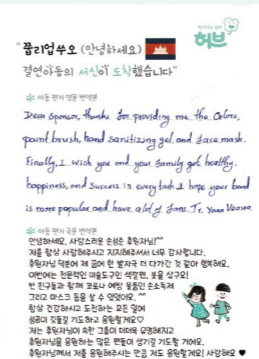 허브
"쭙리업쑤오 (안녕하세요)
결연아동의 서신이 도착했습니다"
아동 편지 영문 번역본
Dear Sponsor, thanks for providing me the Colors,
paint brush, hand sanitizing gel, and face mask.
Finally, I wish you and your family get healthy,
happiness, and success in every task I hope your band
is more popular and have a lot of fans. Tr. Yann Veasna
아동 편지 국문 번역본
안녕하세요, 사랑스러운 손성은 후원자님!^^
저를 항상 사랑해주시고 지지해주셔서 너무 감사합니다.
후원자님 덕분에 제 꿈에 한 발자국 더 다가간 것 같아 행복해요.
이번에는 전문적인 미술도구인 색깔펜, 붓을 샀구요!
반 친구들과 함께 코로나 예방 물품인 손소독제
그리고 마스크 등을 살 수 있었어요. ^^
항상 건강하시고 도전하는 모든 일에
성공이 깃들길 기도하고 응원할게요♡
저는 후원자님이 속한 그룹이 더더욱 유명해지고
후원자님을 응원하는 많은 팬들이 생기길 기도할 거에요.
후원자님께서 저를 응원해주시는 만큼 저도 응원할게요! 사랑해요 ♥